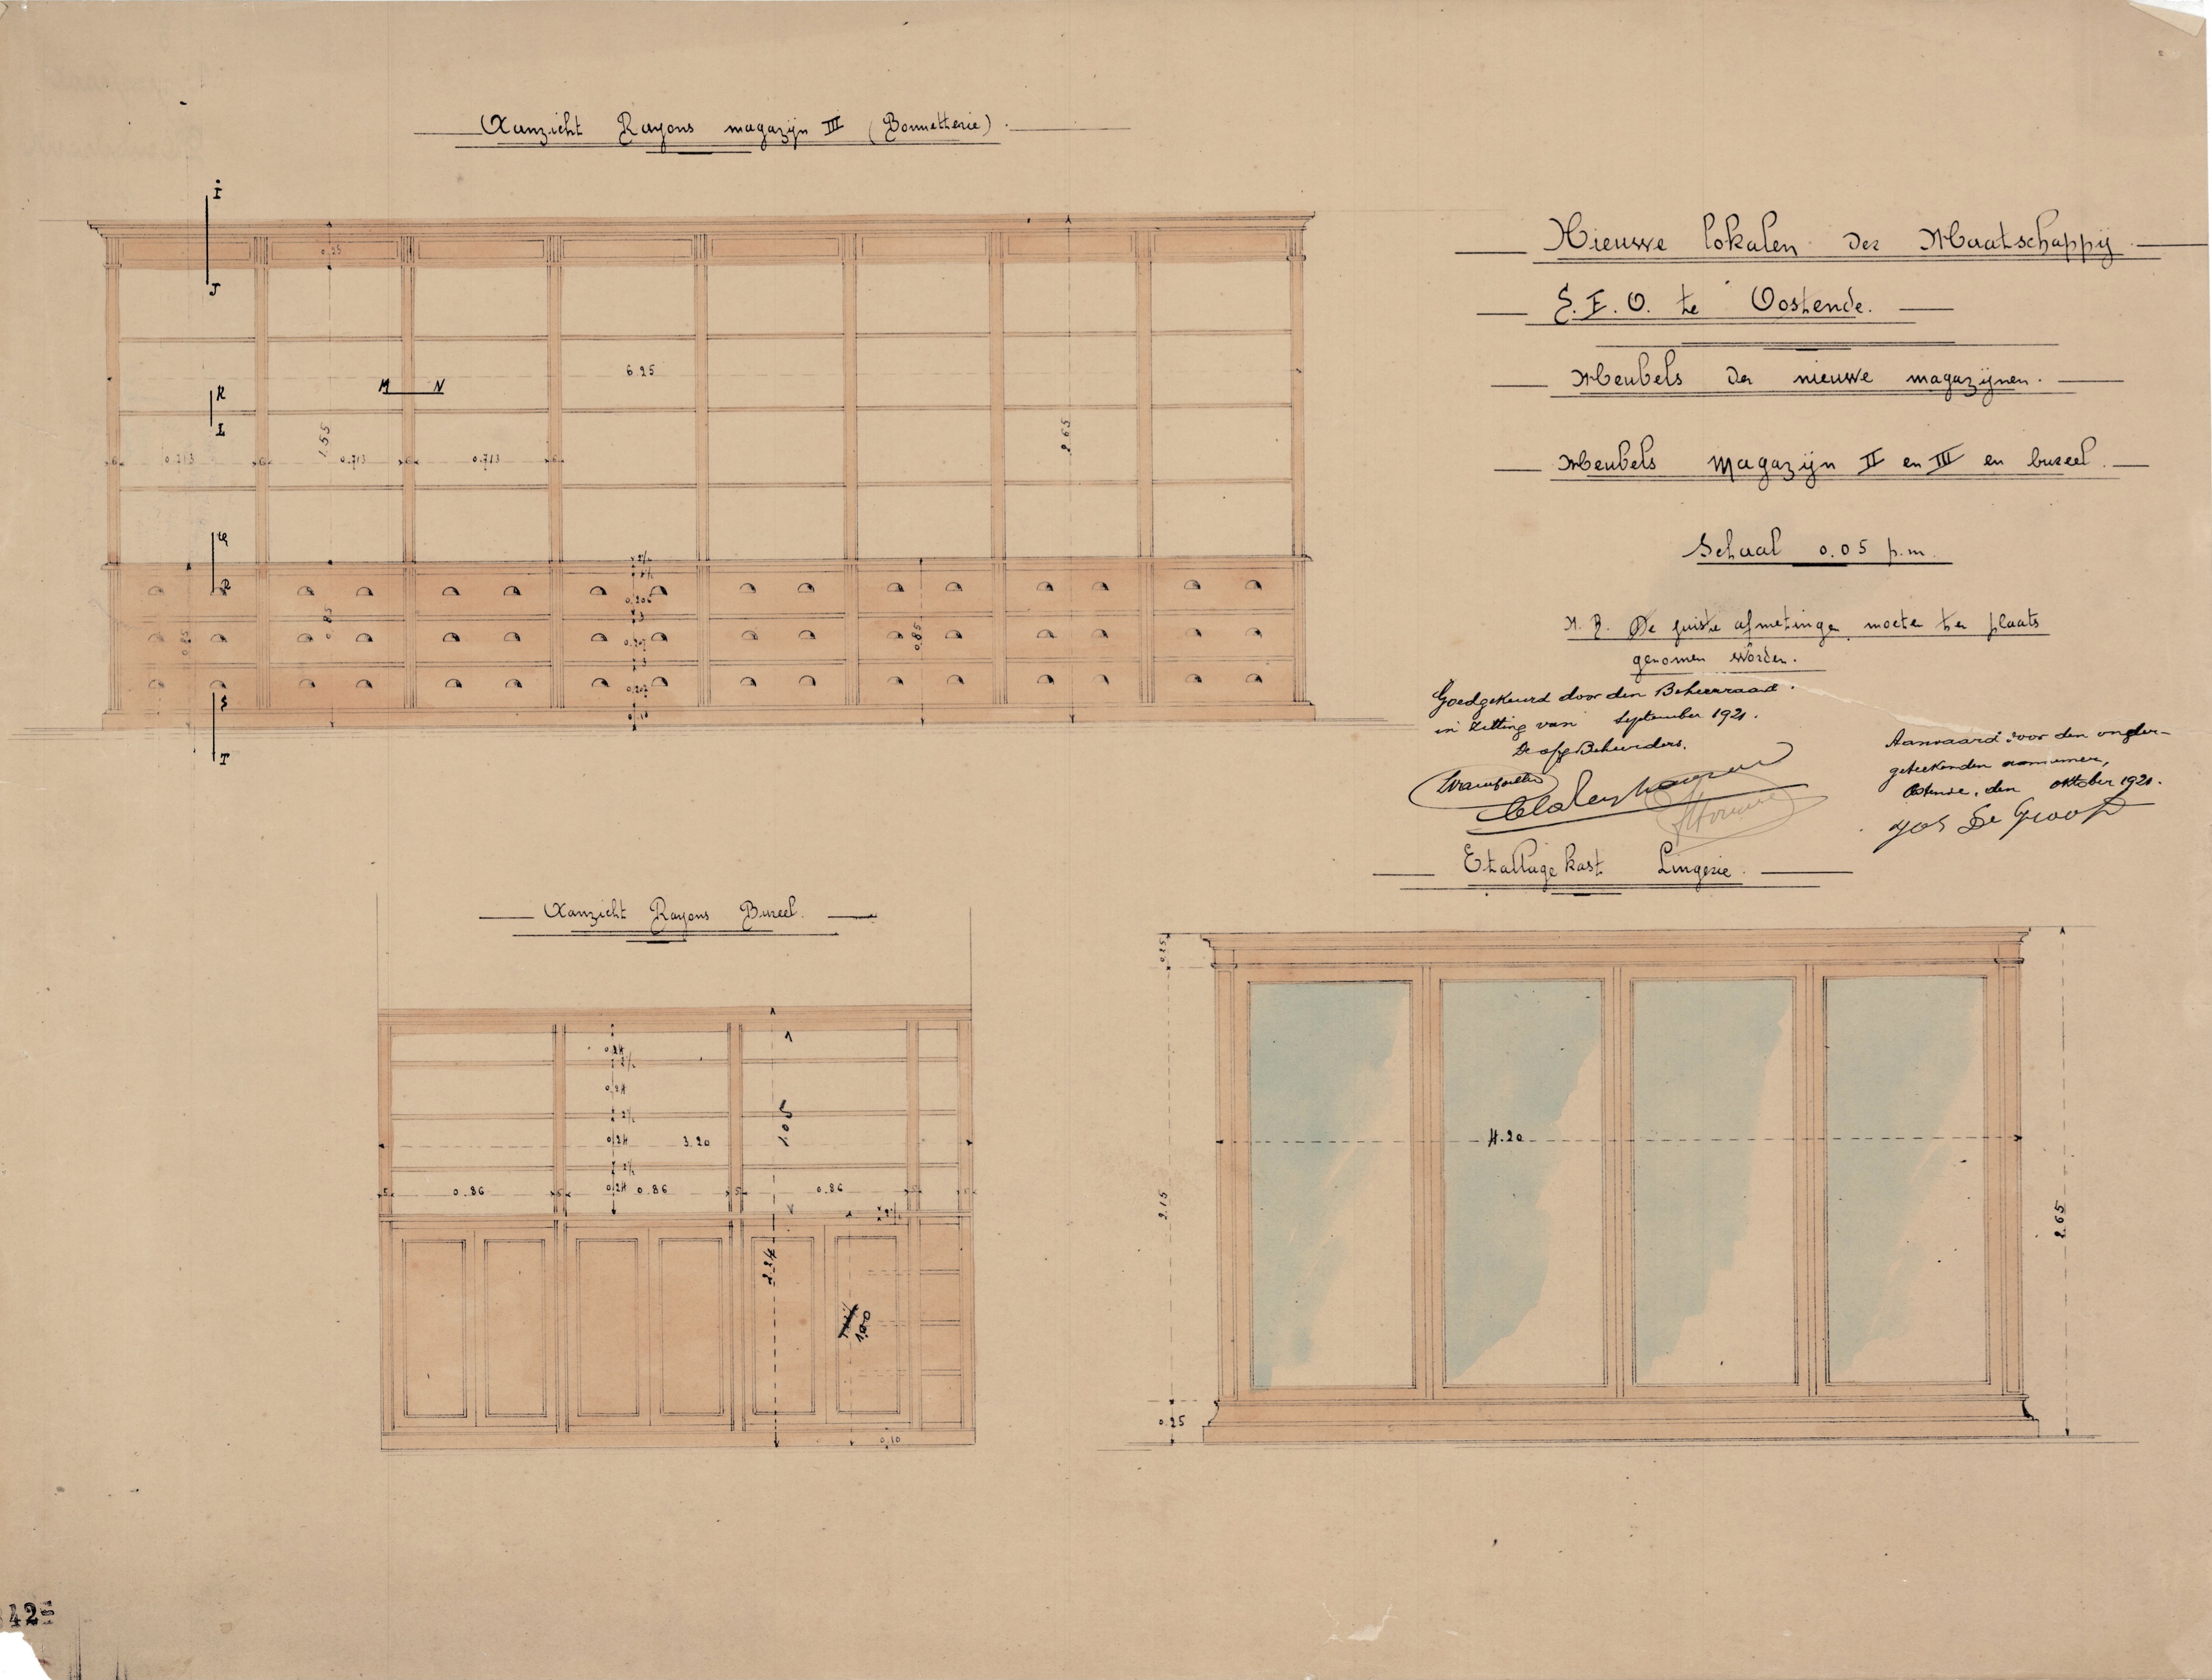 Aanzicht Rayons magazijn III (Bonnetterie).
I
J
0.25
K
L
M N
6.25
1.55
2.65
6 0.713 6 0.713 6 0.713 6
Q
R
2½
4½
0.206
3
0.207
3
0.207
0.10
0.85
0.85
S
T
Nieuwe lokalen der Maatschappij
S.E.O. te Oostende.
Meubels der nieuwe magazijnen.
Meubels Magazijn II en III en bureel.
Schaal 0.05 p.m.
N.B. De juiste afmetinge moete ter plaats
genomen worden.
Goedgekeurd door den Beheerraad.
in zitting van September 1921.
De afg Beheerders.
Aanvaard door den onder-
geteekenden aannemer,
Ostende, den oktober 1921.
Jos De Groof
Aanzicht Rayons Bureel.
0.24
2½
0.24
2½
0.24
2½
0.24
3.20
1.05
5 0.86 5 0.86 5 0.86 5 5
2½
2.24
1.00
0.10
Etallage kast Lingerie.
0.25
2.15
0.25
4.20
2.65
42=